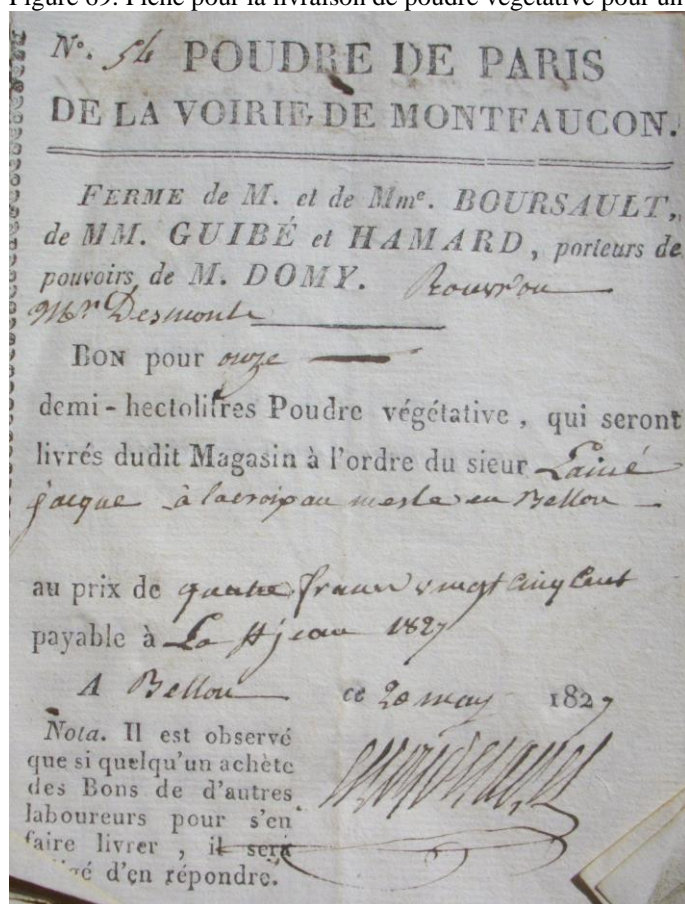 Figure 69. Fiche pour la livraison de poudre végétative pour un
N°. 54 POUDRE DE PARIS
DE LA VOIRIE DE MONTFAUCON.
FERME de M. et de Mme. BOURSAULT,
de MM. GUIBÉ et HAMARD, porteurs de
pouvoirs de M. DOMY.
Mr Desmonts
BON pour onze
demi-hectolitres Poudre végétative, qui seront
livrés dudit Magasin à l'ordre du sieur Lainé
jacque à lacroix au mesle en Bellou
au prix de quatre francs vingt cinq cent
payable à La St jean 1827
A Bellou ce 20 may 1827
Nota. Il est observé
que si quelqu'un achète
des Bons de d'autres
laboureurs pour s'en
faire livrer, il sera
d'en répondre.